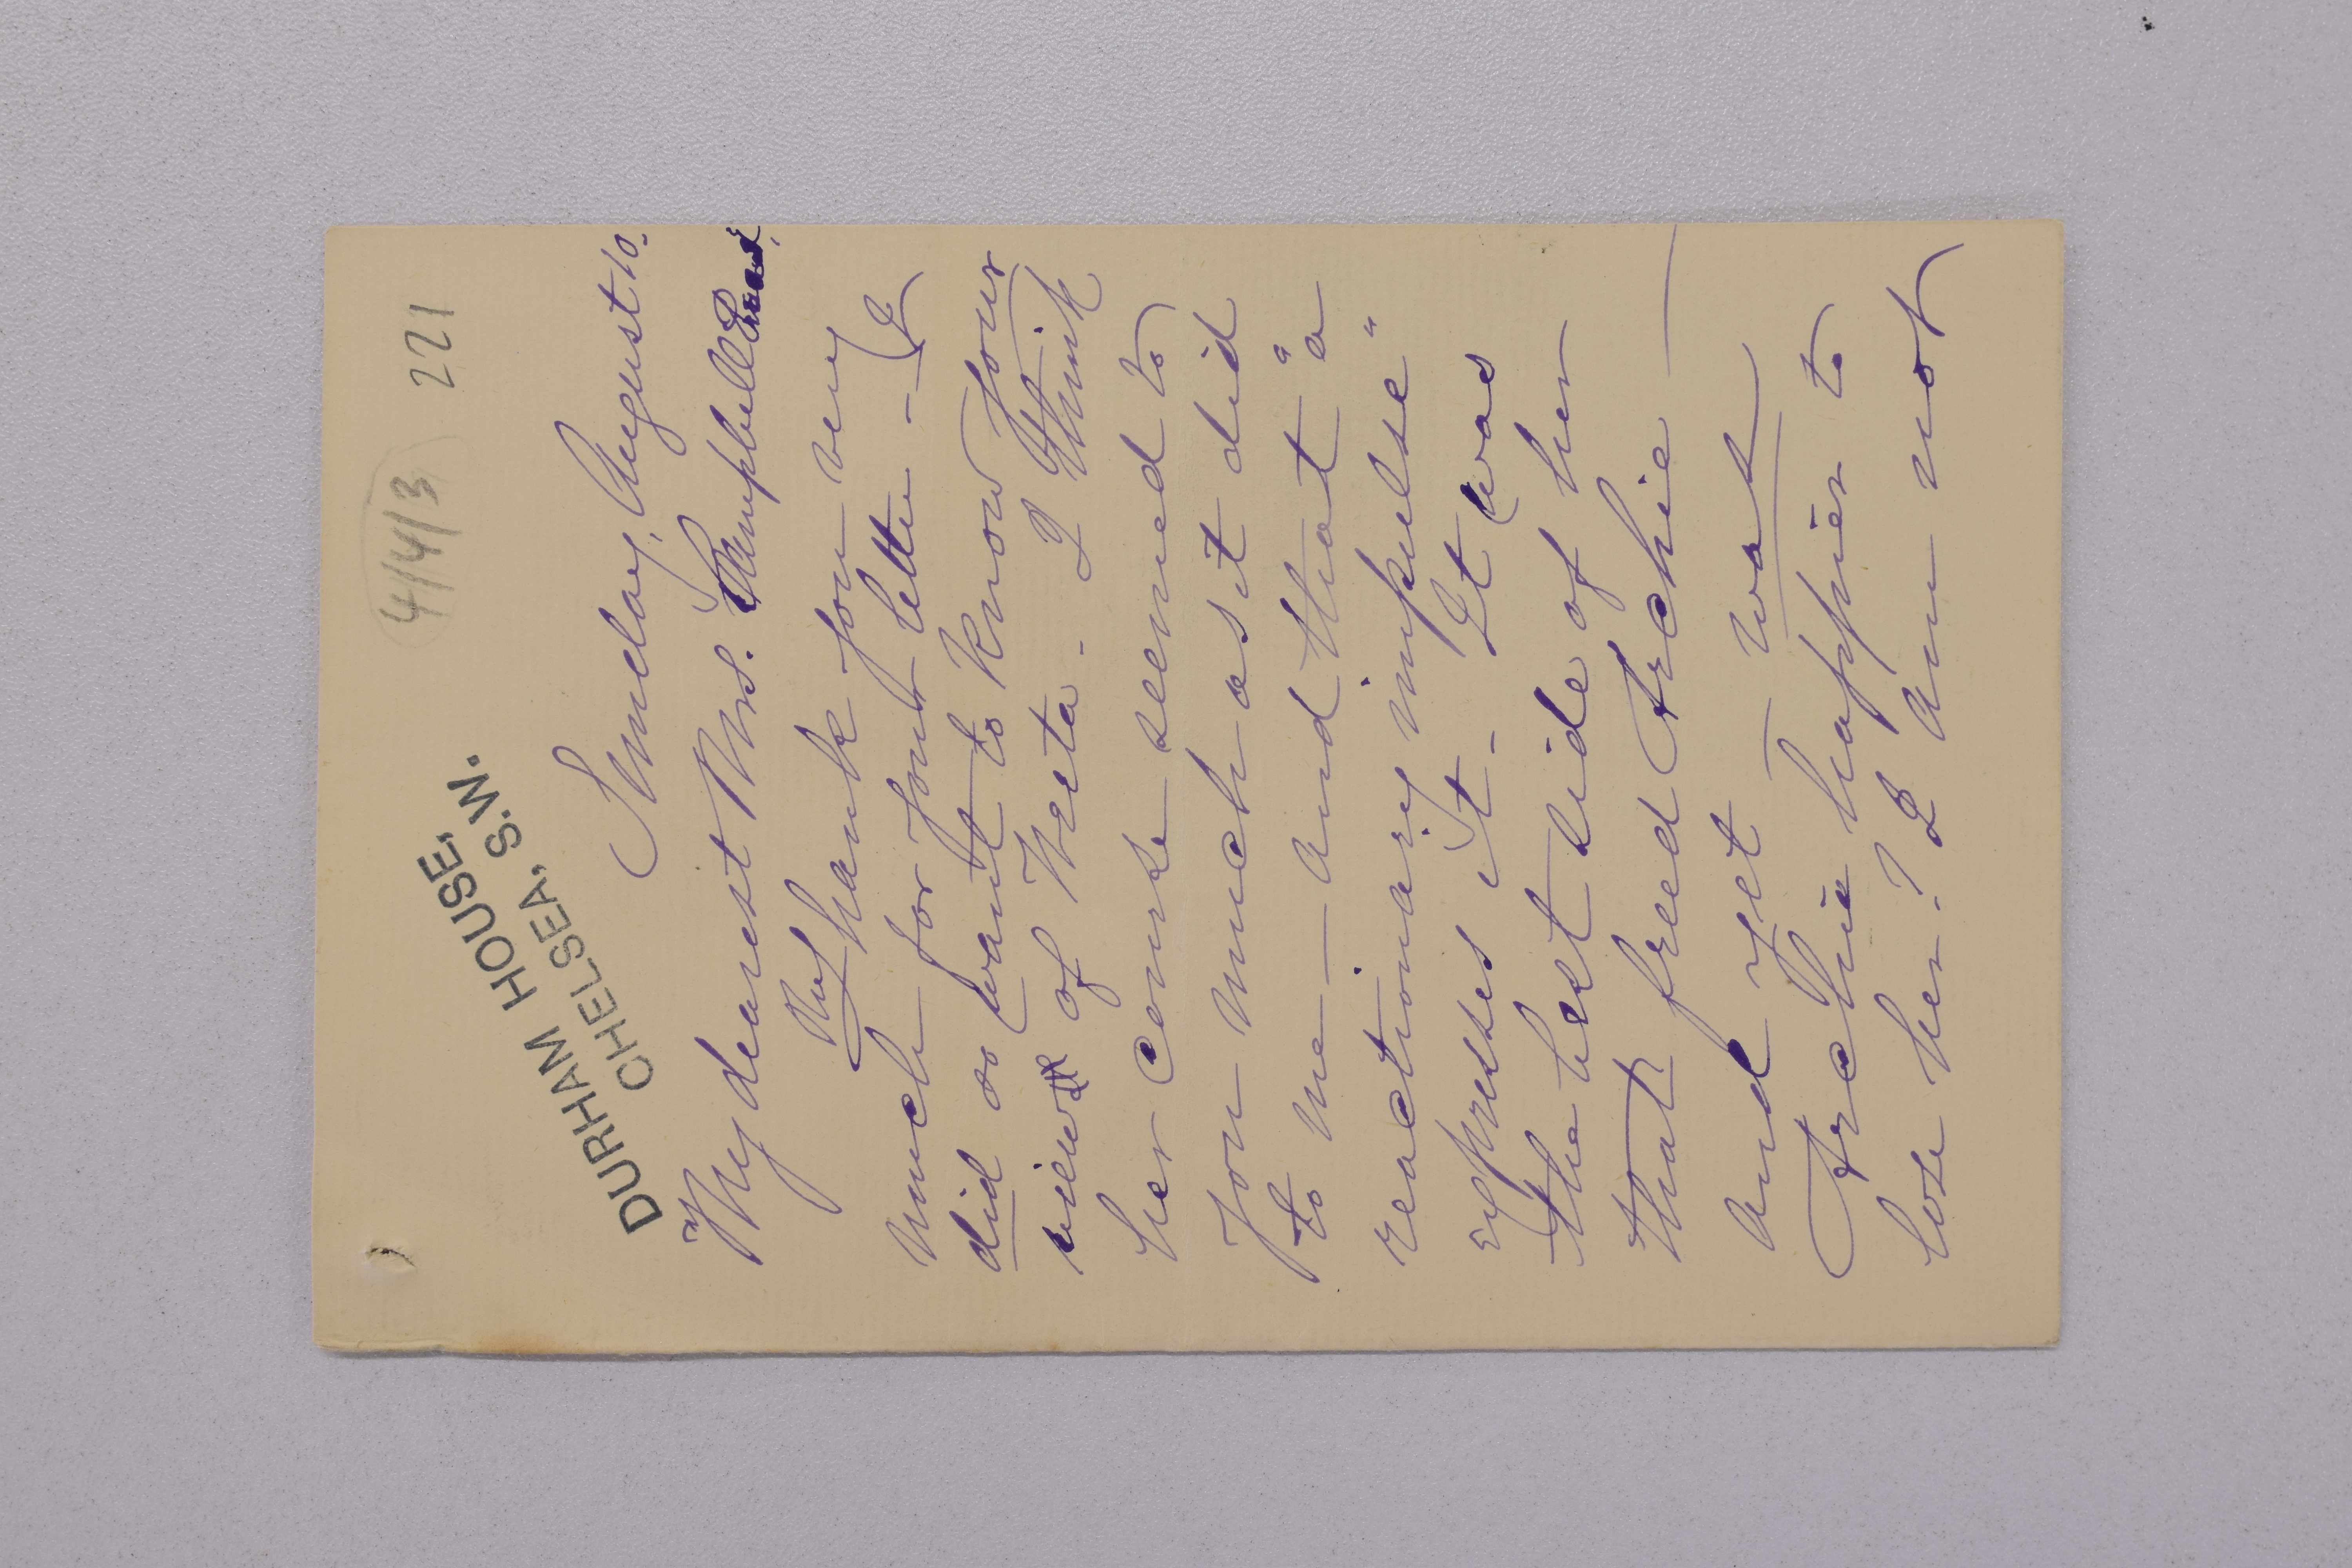 4/4/3 221
DURHAM HOUSE,
CHELSEA, S.W.
Sunday, August 10.
My dearest Mrs. Campbell
Thank you very
much for your letter - I
did so want to know your
view of Meta - I think
her course seemed to
you much as it did
to me - and that "a
reactionary impulse"
expresses it - It was
the best side of her
that freed Archie -
and yet - was
Archie happier to
lose her? I am not